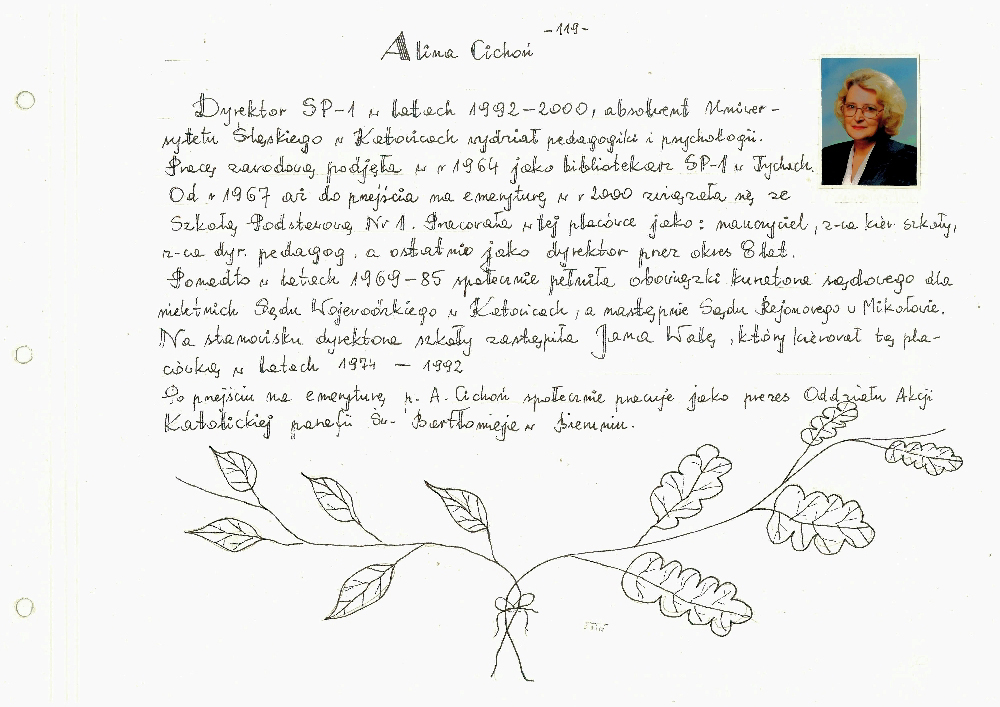 -119-
Alina Cichoń
Dyrektor SP-1 w latach 1992-2000, absolwent Uniwer-
sytetu Śląskiego w Katowicach wydział pedagogiki i psychologii.
Pracę zawodową podjęła w r 1964 jako bibliotekarz SP-1 w Tychach.
Od r 1967 aż do przejścia na emeryturę w r 2000 związała się ze
Szkołą Podstawową Nr 1. Pracowała w tej placówce jako: nauczyciel, z-ca kier. szkoły,
z-ca dyr. pedagog, a ostatnio jako dyrektor przez okres 8 lat.
Ponadto w latach 1969-85 społecznie pełniła obowiązki kuratora sądowego dla
nieletnich Sądu Wojewódzkiego w Katowicach, a następnie Sądu Rejonowego w Mikołowie.
Na stanowisku dyrektora szkoły zastąpiła Jana Walę, który kierował tą pla-
cówką w latach 1974 — 1992
Po przejściu na emeryturę p. A. Cichoń społecznie pracuje jako prezes Oddziału Akcji
Katolickiej parafii Św. Bartłomieja w Bieruniu.